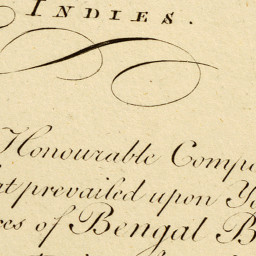 INDIES.
Honourable Comp
prevailed upon Yo
of Bengal B